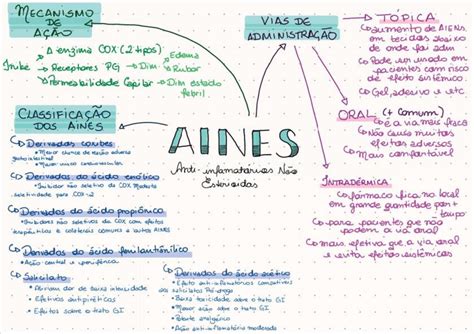 MECANISMO
DE
AÇÃO
Inibe
A enzima COX (2 tipos)
Receptores PG → Dim
Edema
Rubor
Permeabilidade Capilar → Dim estado
febril
VIAS DE
ADMINISTRAÇÃO
TÓPICA
aumento de AIENS
em tecidos abaixo
de onde foi adm
Pode ser usado em
pacientes com risco
de efeito sistêmico
Gel, adesivo e etc
ORAL (+ Comum)
é a via mais fisica
Não causa muitos
efeitos adversos
Mais confortável
INTRADÉRMICA
fármaco fica no local
em grande quantidade por +
tempo
para pacientes que não
podem a via oral
Mais efetiva que a via anal
e evita efeitos sistêmicos
AINES
Anti-inflamatórios Não
Esteroidas
CLASSIFICAÇÃO
DOS AINES
Derivados coxibes
Maior chance de reação adversa
Gastrointestinal
Maior riscos cardiovasculares
Derivados do ácido enólico
Inibidor não seletivo da COX Moderada
seletividade para COX-2
Derivados do ácido propiônico
Inibidores não seletivos da COX com efeitos
terapêuticos e colaterais comuns a outros AINES
Derivados do ácido fenilantrânílico
Ação central e periférica
Salicilato
Atuam dor de baixa intensidade
Efeitos antipiréticos
Efeitos sobre o trato GI
Derivados do ácido acético
Efeito anti-inflamatórios compatíveis
aos salicilatos Pró-droga
Baixa toxicidade sobre o trato GI
Maior ação sobre o trato GI
Potente analgésico
Ação anti-inflamatória moderada